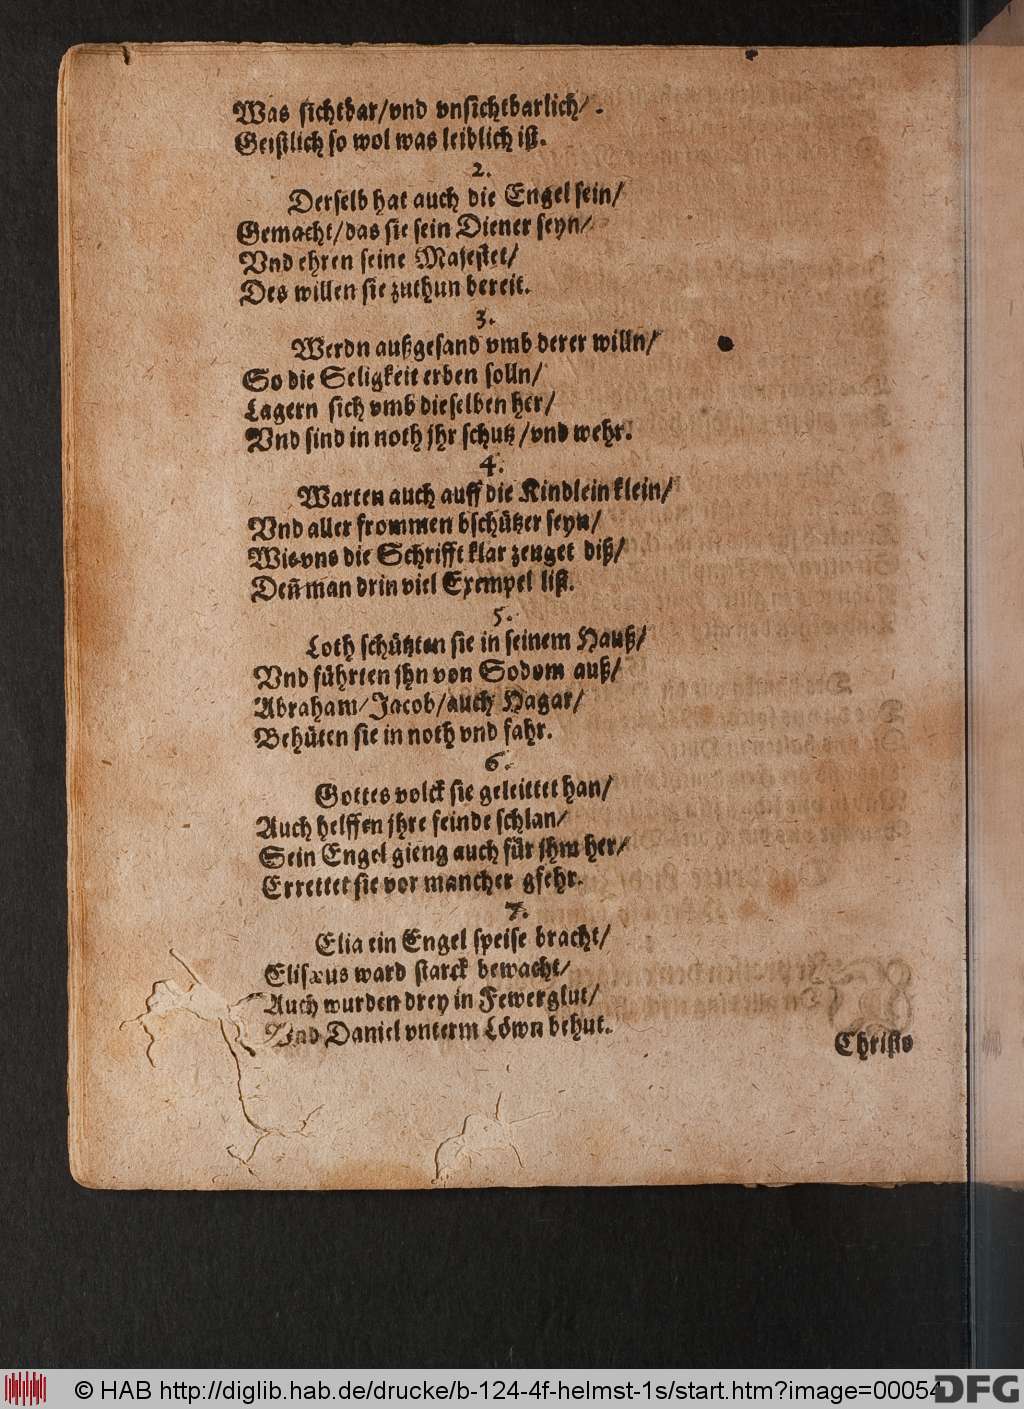 Was sichtbar/vnd vnsichtbarlich/.
Geistlich so wol was leiblich ist.
2.
Derselb hat auch die Engel sein/
Gemacht/das sie sein Diener seyn/
Vnd ehren seine Majestet/
Des willen sie zuthun bereit.
3.
Werdn außgesand vmb derer willn/
So die Seligkeit erben solln/
Lagern sich vmb dieselben her/
Vnd sind in noth jhr schutz/vnd wehr.
4.
Warten auch auff die Kindlein klein/
Vnd aller frommen bschützer seyn/
Wie vns die Schrifft klar zeuget diß/
Deñ man drin viel Exempel list.
5.
Loth schützten sie in seinem Hauß/
Vnd führten jhn von Sodom auß/
Abraham/Jacob/auch Hagar/
Behüten sie in noth vnd fahr.
6.
Gottes volck sie geleittet han/
Auch helffen jhre feinde schlan/
Sein Engel gieng auch für jhm her/
Errettet sie vor mancher gfehr.
7.
Elia ein Engel speise bracht/
Elisæus ward starck bewacht/
Auch wurden drey in Fewerglut/
Vnd Daniel vnterm Löwn behut.
Christo
© HAB http://diglib.hab.de/drucke/b-124-4f-helmst-1s/start.htm?image=00054
DFG